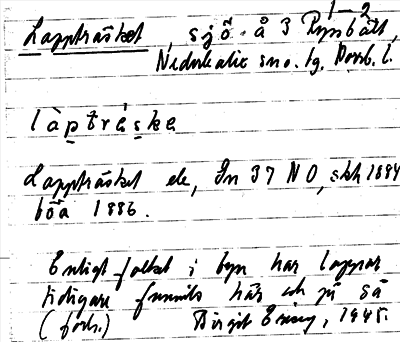 1-2
Lappträsket, sjö å 3 Rynbält,
Nederkalix sn o. tg. Norrb. l.
làptrèske
Lappträsket ek, In 37 NO, skh 1884
böa 1886.
Enligt folket i byn har lappar
tidigare funnits här och på så
(förh.) Birgit Ening, 1945.